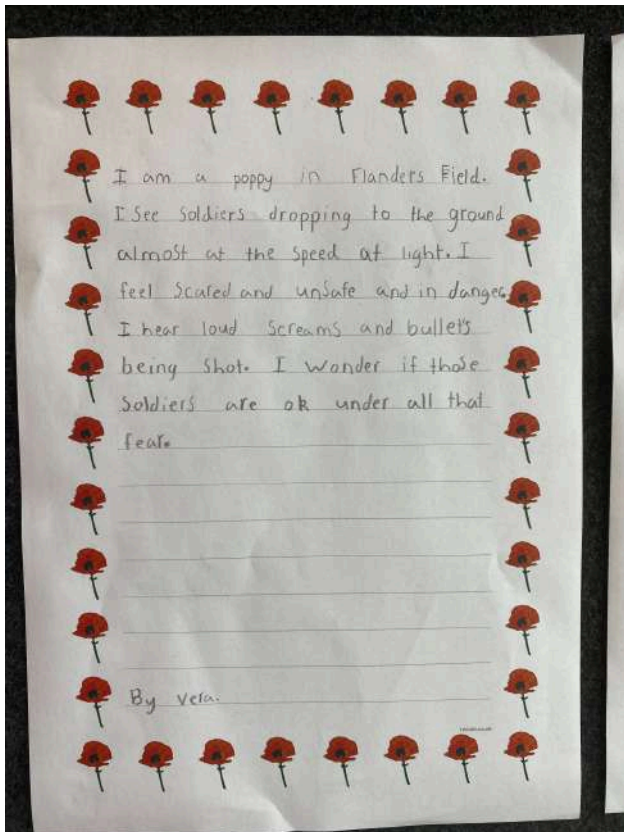 I am a poppy in Flanders Field.
I see soldiers dropping to the ground
almost at the speed at light. I
feel scared and unsafe and in danger.
I hear loud screams and bullets
being shot. I wonder if those
soldiers are ok under all that
fear.
By vera.